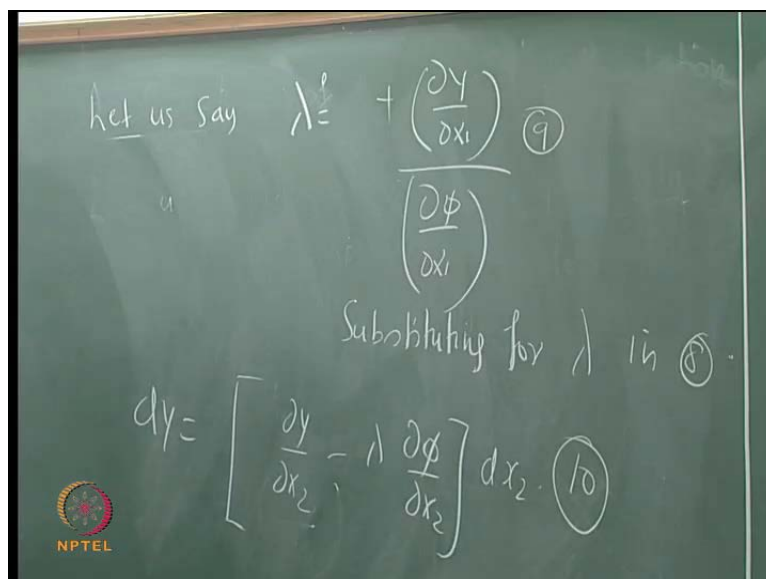 Let us say λ = + (∂y/∂x₁) ⑨
(∂φ/∂x₁)
Substituting for λ in ⑧.
dy = [∂y/∂x₂ - λ ∂φ/∂x₂] dx₂. ⑩
NPTEL